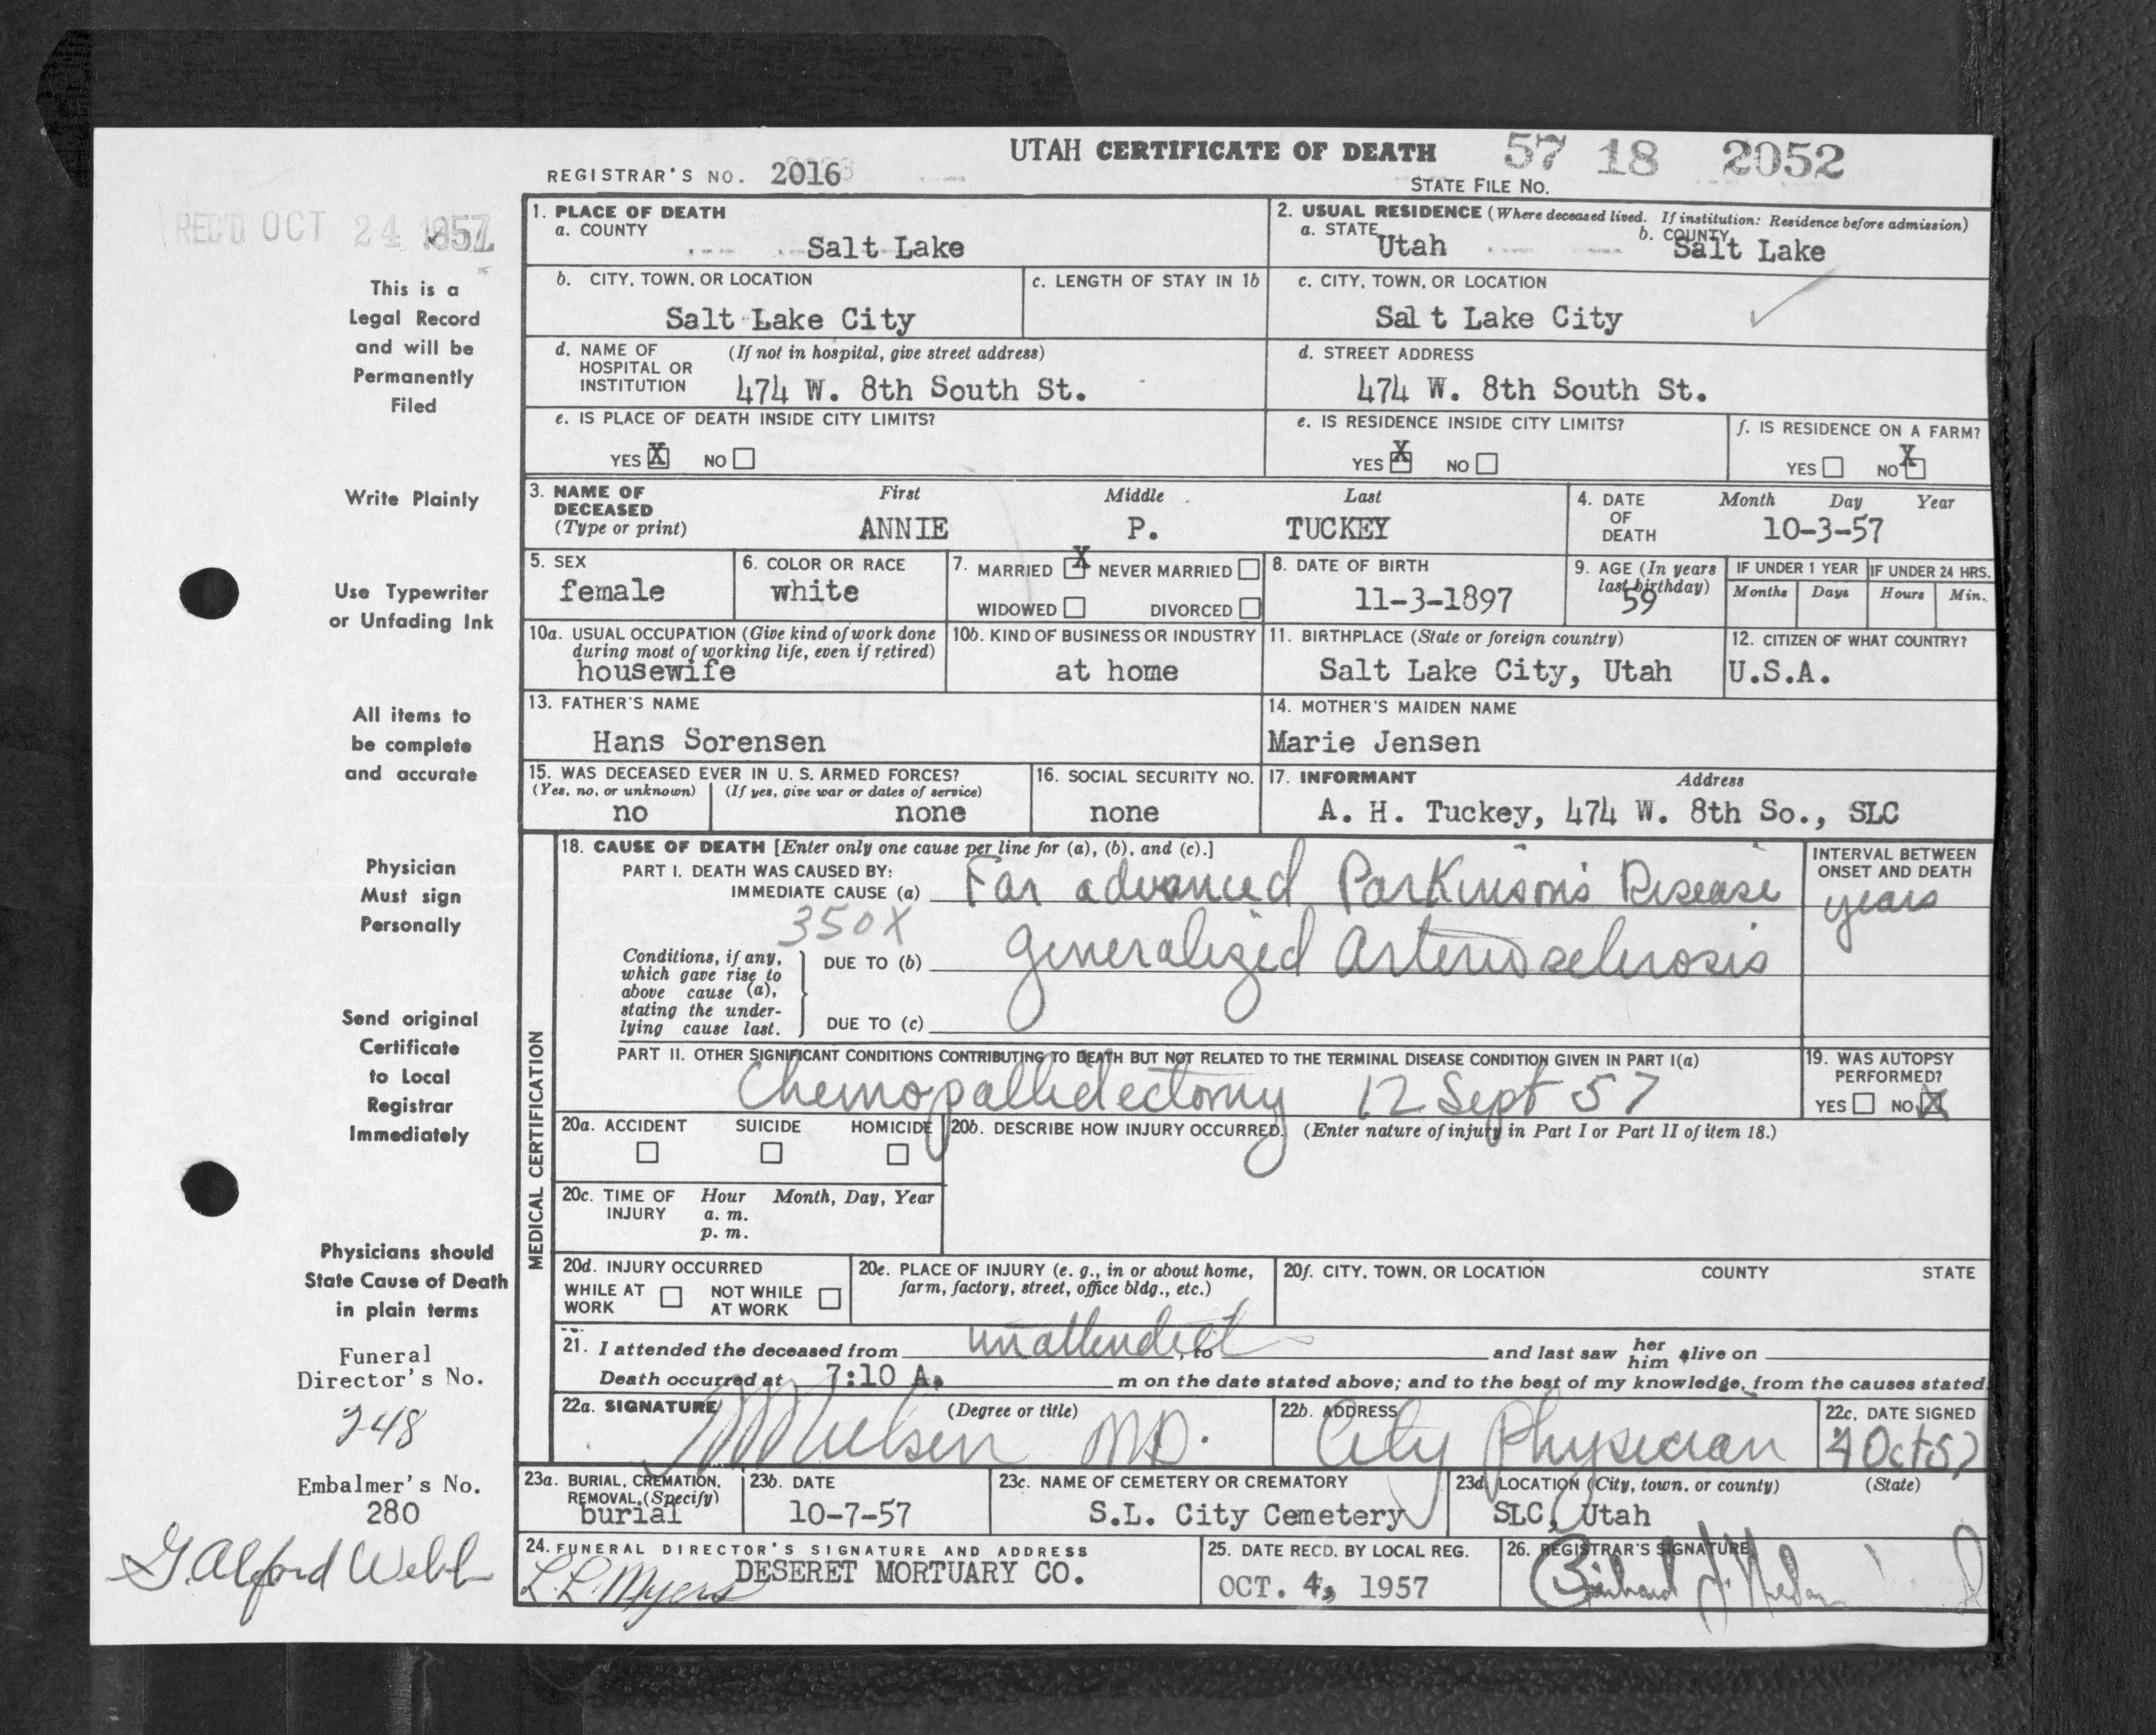 UTAH CERTIFICATE OF DEATH 57 18 2052
REGISTRAR'S NO. 2016
STATE FILE NO.
REC'D OCT 24 1957
This is a
Legal Record
and will be
Permanently
Filed
Write Plainly
Use Typewriter
or Unfading Ink
All items to
be complete
and accurate
Physician
Must sign
Personally
Send original
Certificate
to Local
Registrar
Immediately
Physicians should
State Cause of Death
in plain terms
Funeral
Director's No.
248
Embalmer's No.
280
G Alford Webb
1. PLACE OF DEATH
a. COUNTY
Salt Lake
2. USUAL RESIDENCE (Where deceased lived. If institution: Residence before admission)
a. STATE Utah b. COUNTY Salt Lake
b. CITY, TOWN, OR LOCATION
Salt Lake City
c. LENGTH OF STAY IN 1b
c. CITY, TOWN, OR LOCATION
Sal t Lake City
d. NAME OF (If not in hospital, give street address)
HOSPITAL OR
INSTITUTION 474 W. 8th South St.
d. STREET ADDRESS
474 W. 8th South St.
e. IS PLACE OF DEATH INSIDE CITY LIMITS?
YES X NO
e. IS RESIDENCE INSIDE CITY LIMITS?
YES X NO
f. IS RESIDENCE ON A FARM?
YES NO X
3. NAME OF First Middle Last
DECEASED
(Type or print) ANNIE P. TUCKEY
4. DATE Month Day Year
OF
DEATH 10-3-57
5. SEX
female
6. COLOR OR RACE
white
7. MARRIED X NEVER MARRIED
WIDOWED DIVORCED
8. DATE OF BIRTH
11-3-1897
9. AGE (In years
last birthday)
59
IF UNDER 1 YEAR IF UNDER 24 HRS.
Months Days Hours Min.
10a. USUAL OCCUPATION (Give kind of work done
during most of working life, even if retired)
housewife
10b. KIND OF BUSINESS OR INDUSTRY
at home
11. BIRTHPLACE (State or foreign country)
Salt Lake City, Utah
12. CITIZEN OF WHAT COUNTRY?
U.S.A.
13. FATHER'S NAME
Hans Sorensen
14. MOTHER'S MAIDEN NAME
Marie Jensen
15. WAS DECEASED EVER IN U. S. ARMED FORCES?
(Yes, no, or unknown) (If yes, give war or dates of service)
no none
16. SOCIAL SECURITY NO.
none
17. INFORMANT Address
A. H. Tuckey, 474 W. 8th So., SLC
MEDICAL CERTIFICATION
18. CAUSE OF DEATH [Enter only one cause per line for (a), (b), and (c).]
PART I. DEATH WAS CAUSED BY:
IMMEDIATE CAUSE (a) Far advanced Parkinson's Disease
350X
Conditions, if any,
which gave rise to
above cause (a),
stating the under-
lying cause last.
DUE TO (b) generalized Arteriosclerosis
DUE TO (c)
INTERVAL BETWEEN
ONSET AND DEATH
years
PART II. OTHER SIGNIFICANT CONDITIONS CONTRIBUTING TO DEATH BUT NOT RELATED TO THE TERMINAL DISEASE CONDITION GIVEN IN PART I(a)
Chemopallidectomy 12 Sept 57
19. WAS AUTOPSY
PERFORMED?
YES NO X
20a. ACCIDENT SUICIDE HOMICIDE
20b. DESCRIBE HOW INJURY OCCURRED. (Enter nature of injury in Part I or Part II of item 18.)
20c. TIME OF Hour Month, Day, Year
INJURY a. m.
p. m.
20d. INJURY OCCURRED
WHILE AT NOT WHILE
WORK AT WORK
20e. PLACE OF INJURY (e. g., in or about home,
farm, factory, street, office bldg., etc.)
20f. CITY, TOWN, OR LOCATION COUNTY STATE
21. I attended the deceased from unattended, to and last saw her him alive on
Death occurred at 7:10 A. m on the date stated above; and to the best of my knowledge, from the causes stated
22a. SIGNATURE (Degree or title)
Nielsen MD.
22b. ADDRESS
City Physician
22c. DATE SIGNED
4 Oct 57
23a. BURIAL, CREMATION,
REMOVAL (Specify)
burial
23b. DATE
10-7-57
23c. NAME OF CEMETERY OR CREMATORY
S.L. City Cemetery
23d. LOCATION (City, town, or county) (State)
SLC, Utah
24. FUNERAL DIRECTOR'S SIGNATURE AND ADDRESS
L. L. Myers DESERET MORTUARY CO.
25. DATE RECD. BY LOCAL REG.
OCT. 4, 1957
26. REGISTRAR'S SIGNATURE